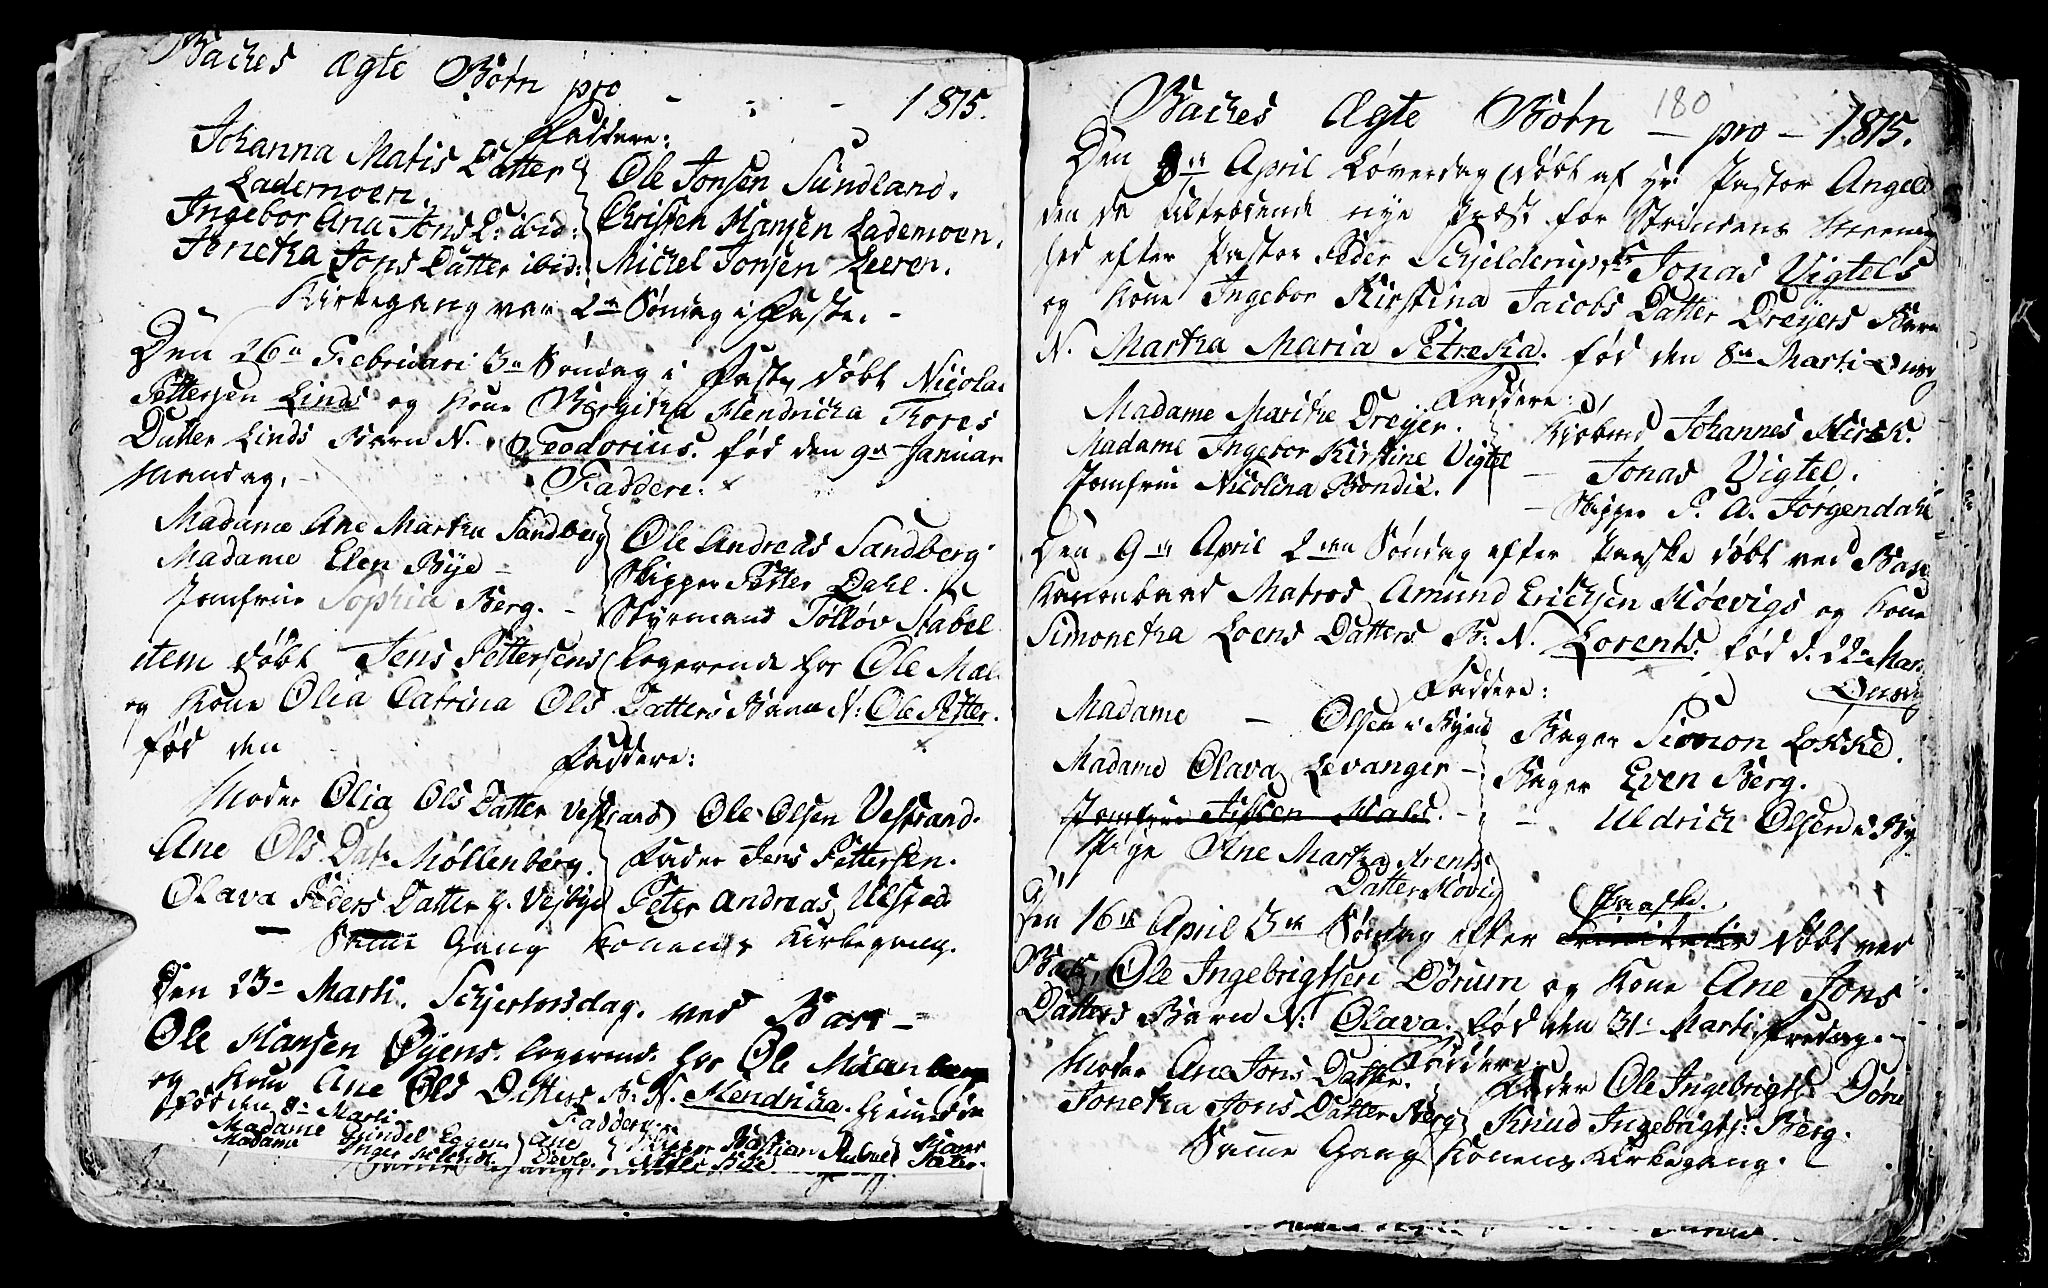 Baches Ægte Børn pro - - - 1815.
Faddere:
Johanna Matis Datter
Lademoen.
Ingebor Ana Jons D: ibid:
Jenetha Jons Datter ibid:
Ole Jonsen Sundland.
Christen Hansen Lademoen.
Michel Jonsen Leeren.
Kirkegang var 2de Søndag i Faste. -
Den 26n Februari 3n Søndag i Faste døbt Nicolai
Pettersen Linds og Kone Hendricka Tores
Datter Linds Barn N. Teodorius. fød den 9n Januar
Mandag. -
Faddere:
Madame Ane Martha Sandberg
Madame Elen Bye -
Jomfrue Sophia Berg. -
Ole Andreas Sandberg
Skipper Petter Dahl.
Styrmand Tølløv Stabel
item døbt Jens Pettersens logerende hos Ole Møl
og Kone Olia Catrina Ols Datters Barn N: Ole Petter.
fød den
Faddere:
Moder Olia Ols Datter Vestrand
Ane Ols Datr Møllenberg.
Olava Peders Datter
Ole Olsen Vestrand.
Fader Jens Pettersen.
Peter Andreas Ulsted
Samme Gang Konens Kirkegang.
Den 23n Marti. Schjertorsdag. ved Barr -
Ole Hansen Øyens. logerend. hos Ole
og Kone Ane Ols Datters B. N. Hendricka.
fød den 8n Marti
Faddere
Madame Gundel Eggen
Madame Inger
Ane
Skipper Bastian
Peter

Baches Ægte Børn 180 - pro - 1815.
Den 9n April Løverdag døbt af Hr: Pastor Angel
den da tiltrædende nye Præst for Strindens Menneg
hed efter Pastor Peder Schjelderup. Jonas Vigtels
og Kone Ingebor Kirstina Jacobs Datter Dreyers Barn
N. Martha Maria Petreha. fød den 8n Marti Onsd
Faddere:
Madame Maritha Dreyer.
Madame Ingebor Kirstine Vigtel
Jomfrue Nicolina Bondil.
Kiøbmd Johannes Hirsk.
- Jonas Vigtel.
- Skipper P. A. Jørgendahl
Den 9n April 2den Søndag efter Paaske døbt ved Bak
Matros Amund Erichsen Høevigs og Kone
Simonetha Loens Datters B: N. Lorents. fød d. 22n Mar.
Onsd
Faddere:
Madame - Olsen i Byen
Madame Olava Levanger -
Pige Ane Martha Arents
Datter Hovig
Bager Simon Løkke.
Bager Even Berg.
- Uldrich Olsen i By
Den 16n April 3n Søndag efter Paaske. døbt ved
Bak, Ole Ingebrigtsen Dørum og Kone Ane Jons
Datters Barn N: Olava. fød den 31n Marti fredag. -
Faddere
Moder Ane Jons Datter.
Jonetha Jons Datter Berg
Fader Ole Ingebrigts: Døru
Knud Ingebrigts: Berg.
Samme Gang Konens Kirkegang.